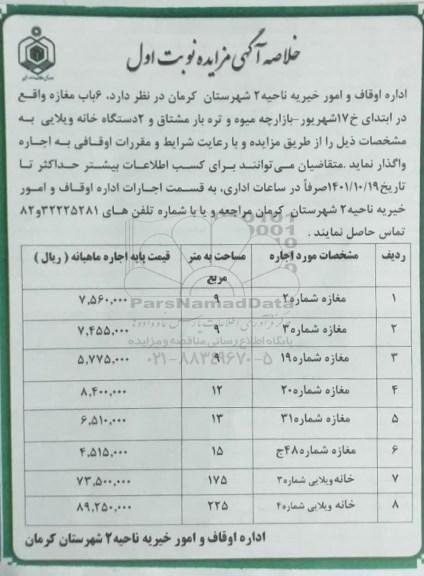 خلاصه آگهی مزایده نوبت اول
اداره اوقاف و امور خیریه ناحیه۲ شهرستان کرمان در نظر دارد، ۶باب مغازه واقع
در ابتدای خ۱۷شهریور-بازارچه میوه و تره بار مشتاق و ۲دستگاه خانه ویلایی به
مشخصات ذیل را از طریق مزایده و با رعایت شرایط و مقررات اوقافی به اجاره
واگذار نماید .متقاضیان می‌توانند برای کسب اطلاعات بیشتر حداکثر تا
تاریخ۱۴۰۱/۱۰/۱۹صرفاً در ساعات اداری، به قسمت اجارات اداره اوقاف و امور
خیریه ناحیه۲ شهرستان کرمان مراجعه و یا با شماره تلفن های ۳۲۲۲۵۲۸۱و۸۲
تماس حاصل نمایند .
ردیف مشخصات مورد اجاره مساحت به متر مربع قیمت پایه اجاره ماهیانه ( ریال )
۱ مغازه شماره۲ ۹ ۷,۵۶۰,۰۰۰
۲ مغازه شماره۳ ۹ ۷,۴۵۵,۰۰۰
۳ مغازه شماره۱۹ ۹ ۵,۷۷۵,۰۰۰
۴ مغازه شماره۲۰ ۱۲ ۸,۴۰۰,۰۰۰
۵ مغازه شماره۳۱ ۱۳ ۶,۵۱۰,۰۰۰
۶ مغازه شماره۴۸ج ۱۵ ۴,۵۱۵,۰۰۰
۷ خانه ویلایی شماره۳ ۱۷۵ ۷۳,۵۰۰,۰۰۰
۸ خانه ویلایی شماره۴ ۲۲۵ ۸۹,۲۵۰,۰۰۰
اداره اوقاف و امور خیریه ناحیه۲ شهرستان کرمان
ParsNamadData
پایگاه اطلاع رسانی مناقصه و مزایده
۰۲۱-۸۸۳۴۹۶۷۰-۵